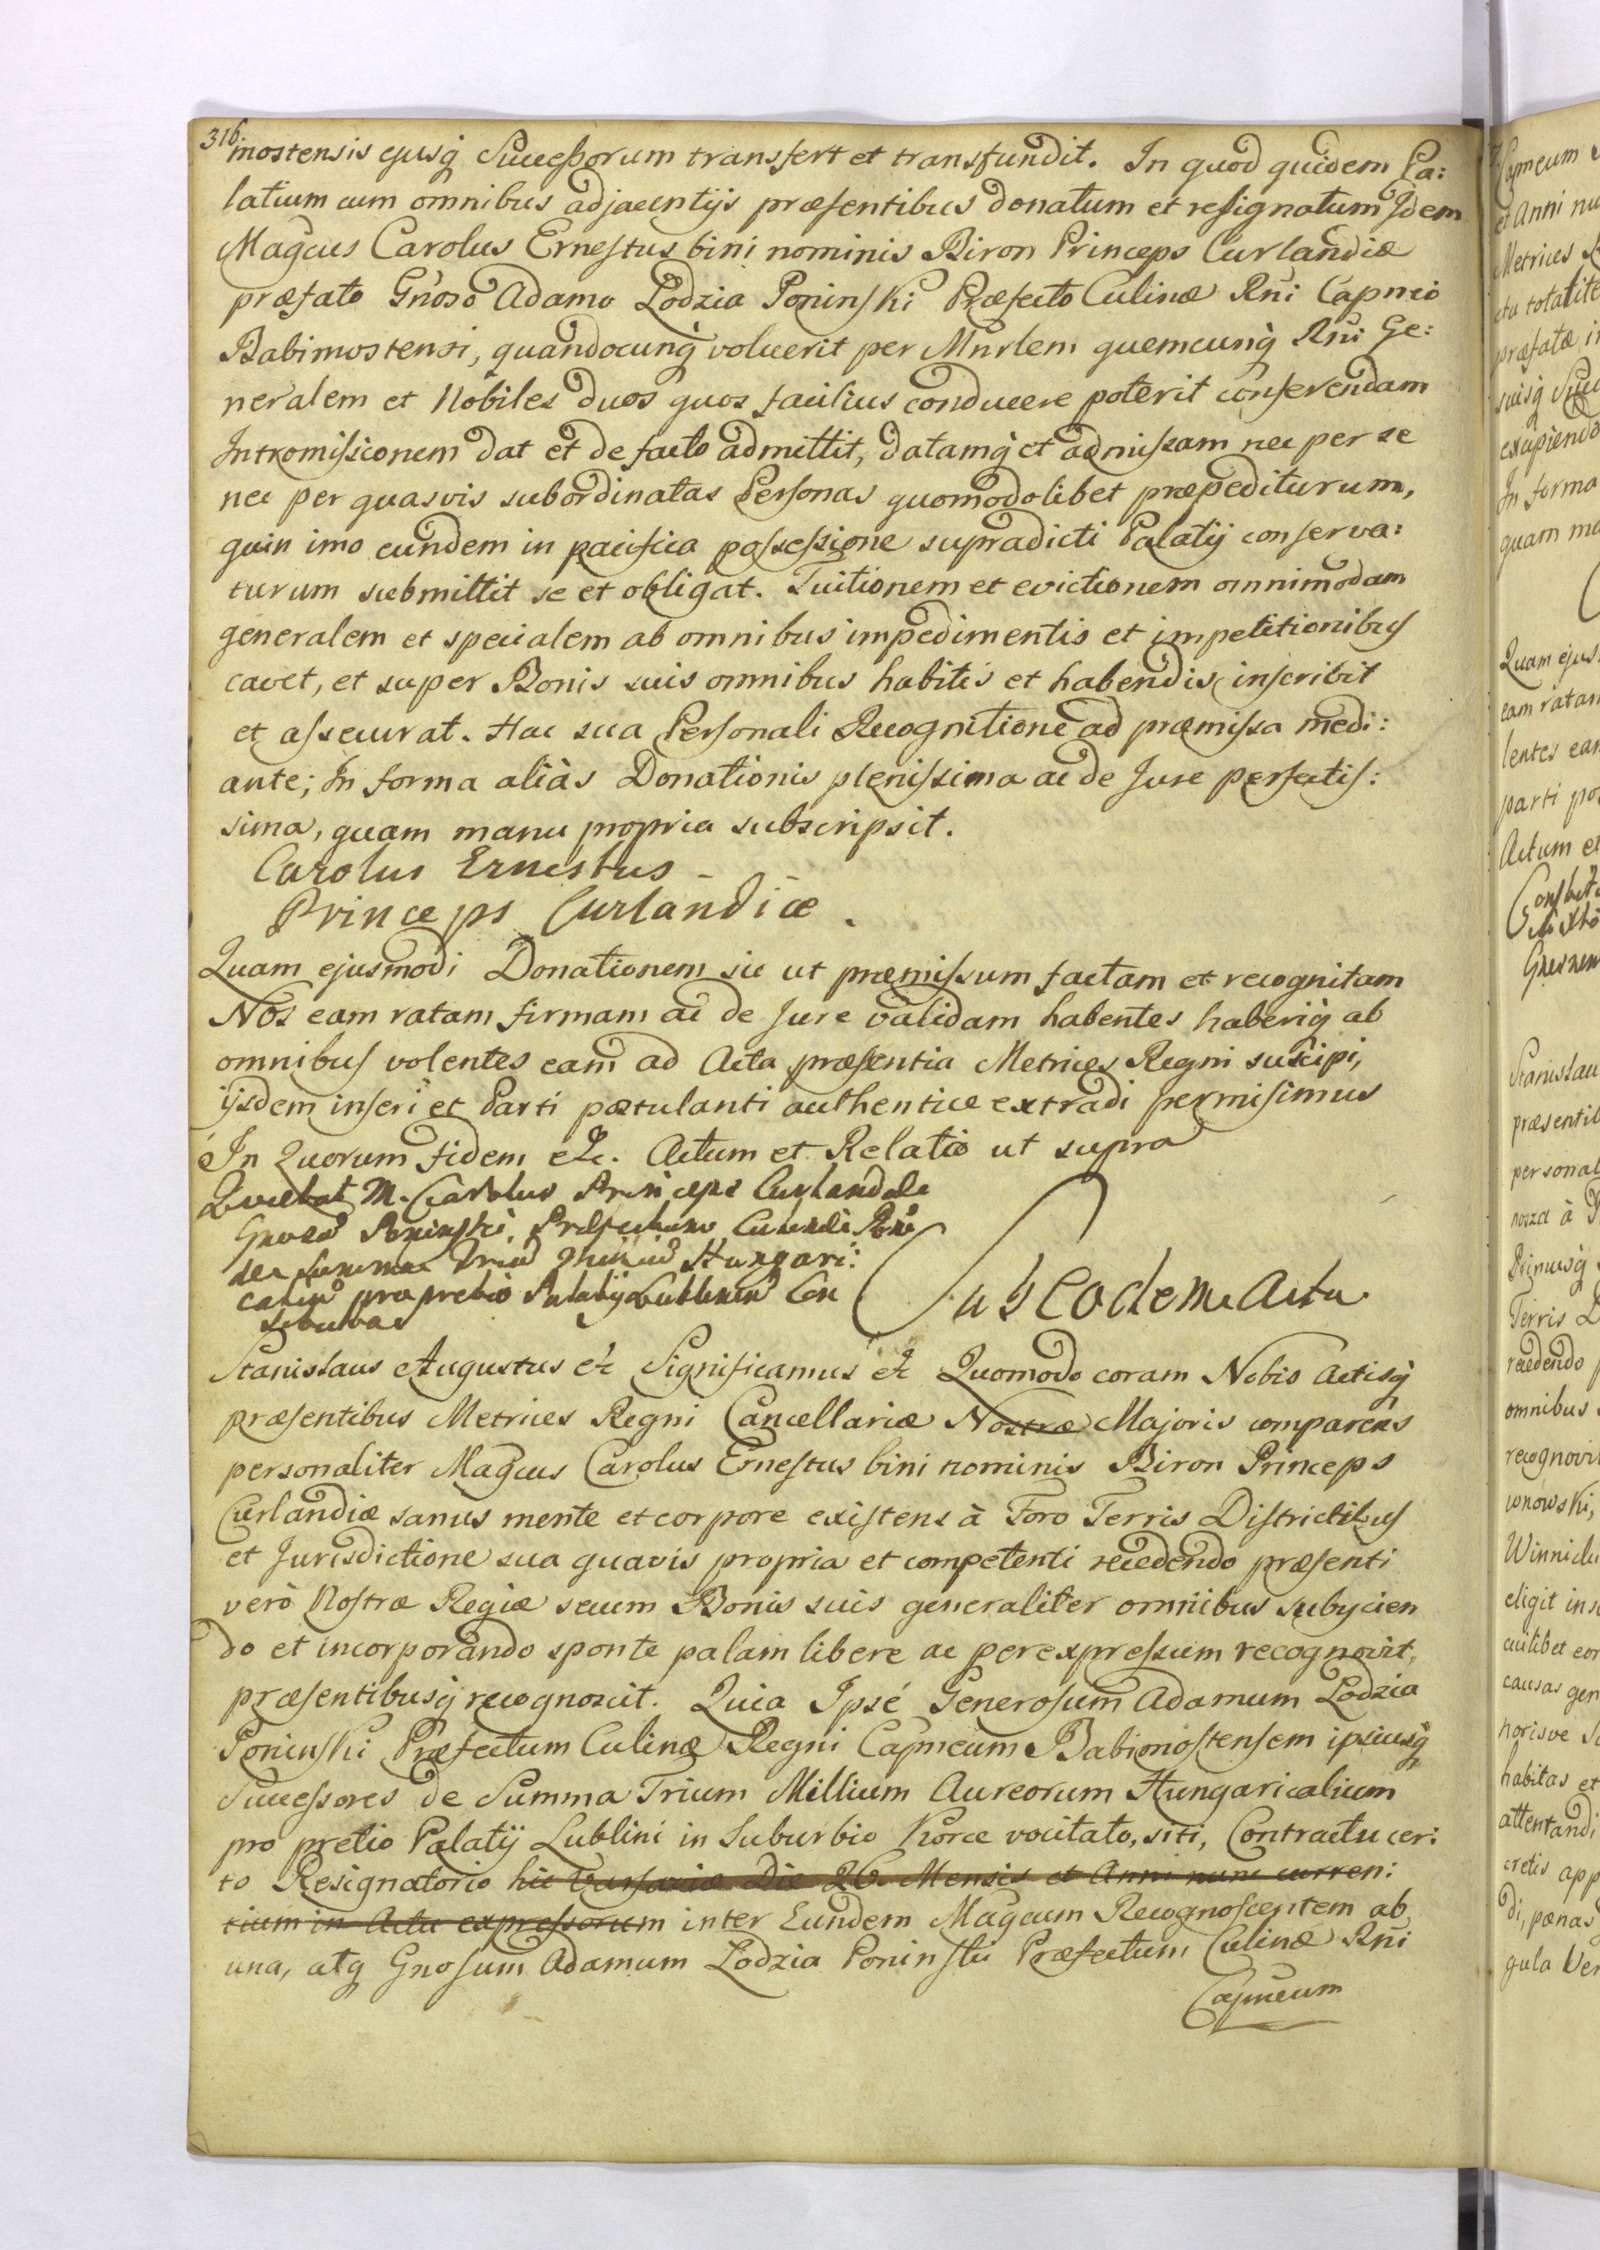 316
mostensis ejusq̃ Successorum transfert et transfundit. In quod quidem Pa:
latium cum omnibus adjacentijs præsentibus donatum et resignatum Idem
Magcus Carolus Ernestus bini nominis Biron Princeps Curlandiæ
præfato Gñoso Adamo Lodzia Poninski Præfecto Culinæ Rñi Capneo
Babimostensi, quandocunq̃ voluerit per Mnrlem quemcunq̃ Rñi Ge:
neralem et Nobiles duos quos facilius conducere poterit conferendam
Intromissionem dat et de facto admittit, datamq̃ et admissam nec per se
nec per quasvis subordinatas Personas quomodolibet præpediturum,
quin imo eundem in pacifica possessione supradicti Palatij conserva:
turum submittit se et obligat. Tuitionem et evictionem omnimodam
generalem et specialem ab omnibus impedimentis et impetitionibus
cavet, et super Bonis suis omnibus habitis et habendis inscribit
et assecurat. Hac sua Personali Recognitione ad præmissa medi:
ante; In forma aliàs Donationis plenissima ac de Jure perfectis:
sima, quam manu propria subscripsit.
Carolus Ernestus
Princeps Curlandiæ.
Quam ejusmodi Donationem sic ut præmissum factam et recognitam
Nos eam ratam firmam ac de Jure validam habentes haberiq̃ ab
omnibus volentes eam ad Acta præsentia Metrices Regni suscipi,
ijsdem inseri et Parti postulanti authentice extradi permisimus
In Quorum fidem etc. Actum et Relatio ut supra
Quietat M. Carolus Princeps Curlandiæ
Gnosũ Poninski, Præfectum Culinæ Rñi
de Summa Triũ Milliũ Hungari:
caliũ pro pretio Palatij Lublinen̄ Con
Sub eodem Actu
Stanislaus Augustus etc Significamus etc Quomodo coram Nobis Actisq̃
præsentibus Metrices Regni Cancellariæ Nostræ Majoris comparens
personaliter Magcus Carolus Ernestus bini nominis Biron Princeps
Curlandiæ sanus mente et corpore existens à Foro Terris Districtibus
et Jurisdictione sua quavis propria et competenti recedendo præsenti
verò Nostræ Regiæ secum Bonis suis generaliter omnibus subycien
do et incorporando sponte palam libere ac per expressum recognovit,
præsentibusq̃ recognoscit. Quia Ipsé Generosum Adamum Lodzia
Poninski Præfectum Culinæ Regni Capneum Babimostensem ipsiusq̃
Successores de Summa Trium Millium Aureorum Hungaricalium
pro pretio Palatij Lublini in Suburbio Korce vocitato, siti, Contractu cer:
to Resignatorio hic Varsaviæ Die 26. Mensis et Anni nunc curren:
tium in Actu expressorum inter Eundem Magcum Recognoscentem ab
una, atq̃ Gnosum Adamum Lodzia Poninski Præfectum Culinæ Rñi
Capneum